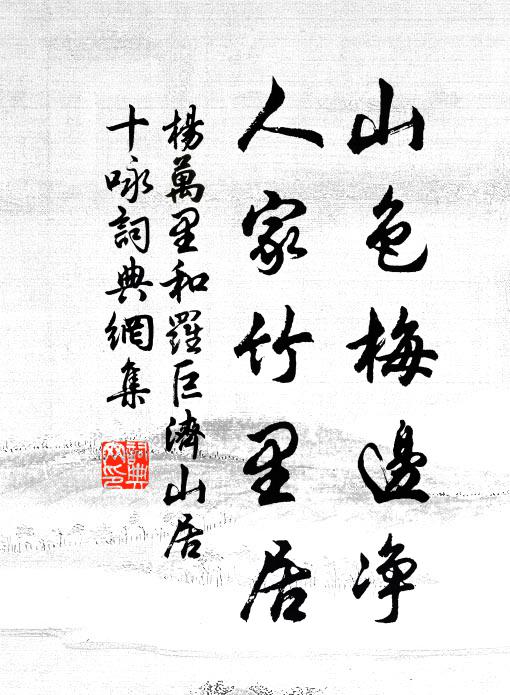 山色梅邊净
人家竹里居
楊萬里和羅巨濟山居
十咏詞典網集